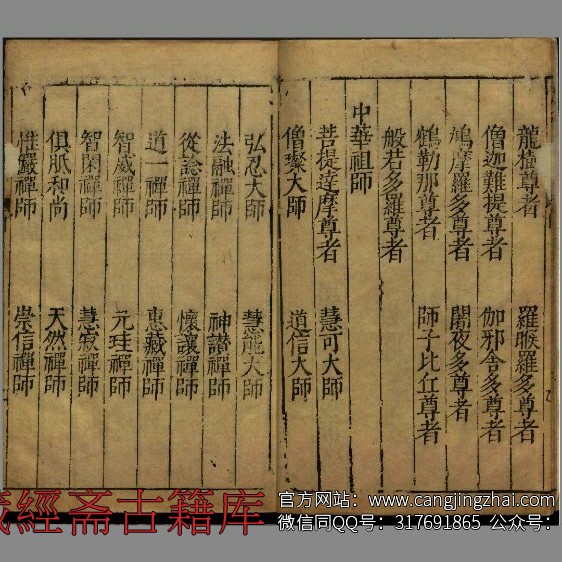 龍樹尊者 羅睺羅多尊者
僧迦難提尊者 伽邪舍多尊者
鳩摩羅多尊者 闍夜多尊者
鶴勒那尊者 師子比丘尊者
般若多羅尊者
中華祖師
菩提達摩尊者 慧可大師
僧璨大師 道信大師
弘忍大師 慧能大師
法融禪師 神讃禪師
從諗禪師 懷讓禪師
道一禪師 惠藏禪師
智威禪師 元珪禪師
智閑禪師 慧寂禪師
俱胝和尚 天然禪師
惟儼禪師 崇信禪師
藏經斋古籍库
官方网站：www.cangjingzhai.com
微信同QQ号：317691865 公众号：